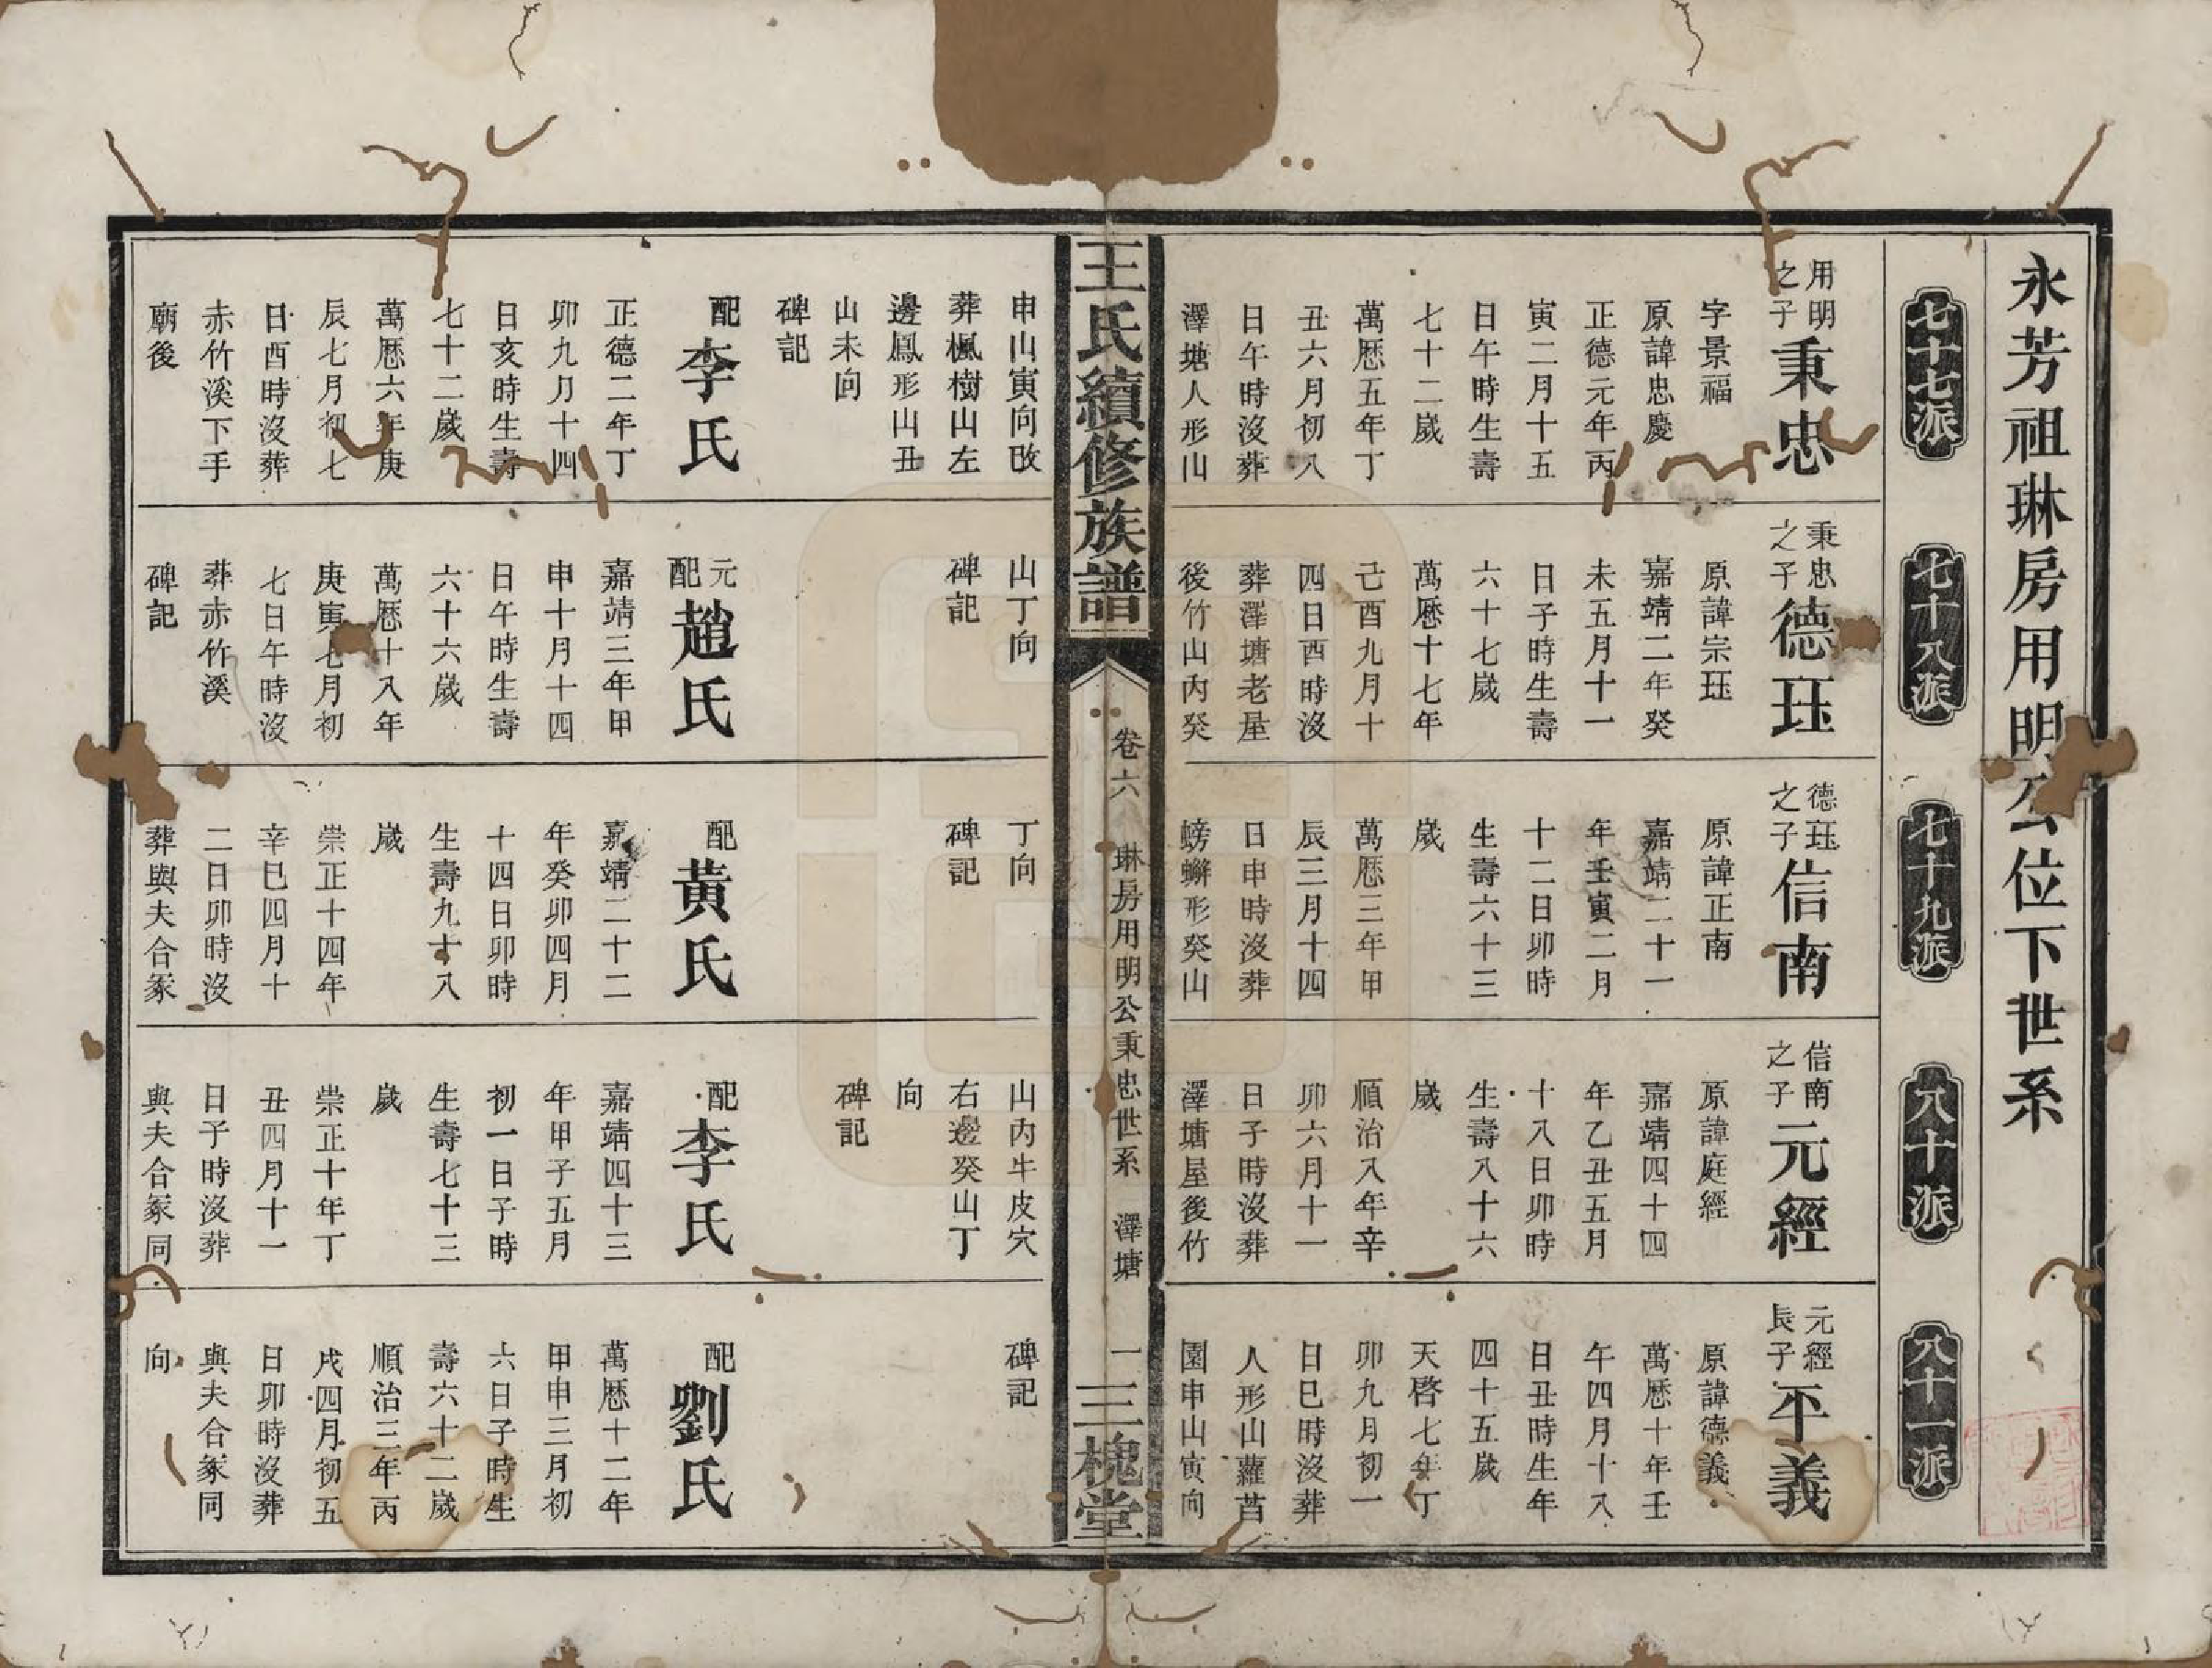 永芳祖琳房用明公位下世系
七十七派
七十八派
七十九派
八十派
八十一派
用明
之子
秉忠
字景福
原諱忠慶
正德元年丙
寅二月十五
日午時生壽
七十二歲
萬厯五年丁
丑六月初八
日午時沒葬
澤塘人形山
申山寅向改
葬楓樹山左
邊鳳形山丑
山未向
碑記
配
李氏
正德二年丁
卯九月十四
日亥時生壽
七十二歲
萬厯六年庚
辰七月初七
日酉時沒葬
赤竹溪下手
廟後
秉忠
之子
德珏
原諱宗珏
嘉靖二年癸
未五月十一
日子時生壽
六十七歲
萬厯十七年
己酉九月十
四日酉時沒
葬澤塘老屋
後竹山內癸
山丁向
碑記
元
配
趙氏
嘉靖三年甲
申十月十四
日午時生壽
六十六歲
萬厯十八年
庚寅七月初
七日午時沒
葬赤竹溪
碑記
德珏
之子
信南
原諱正南
嘉靖二十一
年壬寅二月
十二日卯時
生壽六十三
歲
萬厯三年甲
辰三月十四
日申時沒葬
螃蠏形癸山
丁向
碑記
配
黃氏
嘉靖二十二
年癸卯四月
十四日卯時
生壽九十八
歲
崇正十四年
辛巳四月十
二日卯時沒
葬與夫合冢
信南
之子
元經
原諱庭經
嘉靖四十四
年乙丑五月
十八日卯時
生壽八十六
歲
順治八年辛
卯六月十一
日子時沒葬
澤塘屋後竹
山內牛皮穴
右邊癸山丁
向
碑記
配
李氏
嘉靖四十三
年甲子五月
初一日子時
生壽七十三
歲
崇正十年丁
丑四月十一
日子時沒葬
與夫合冢同
元經
長子
平義
原諱德義
萬厯十年壬
午四月十八
日丑時生年
四十五歲
天啓七年丁
卯九月初一
日巳時沒葬
人形山蘿苔
園申山寅向
碑記
配
劉氏
萬厯十二年
甲申三月初
六日子時生
壽六十二歲
順治三年丙
戌四月初五
日卯時沒葬
與夫合冢同
向
王氏續修族譜
卷六
琳房用明公秉忠世系
澤塘
一
三槐堂